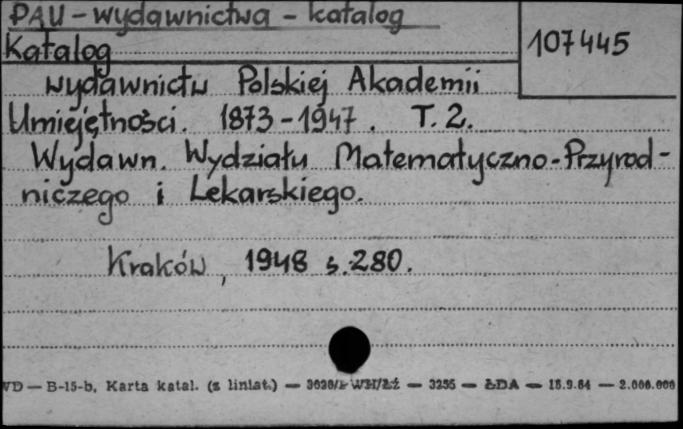 PAU - wydawnictwa - katalog
107445
Katalog
wydawnictw Polskiej Akademii
Umiejętności. 1873-1947. T. 2.
Wydawn. Wydziału Matematyczno-Przyrod-
niczego i Lekarskiego.
Kraków, 1948 s. 280.
VD — B-15-b, Karta katal. (z liniat.) — — 3255 — ŁDA — 18.9.64 — 2.000.000